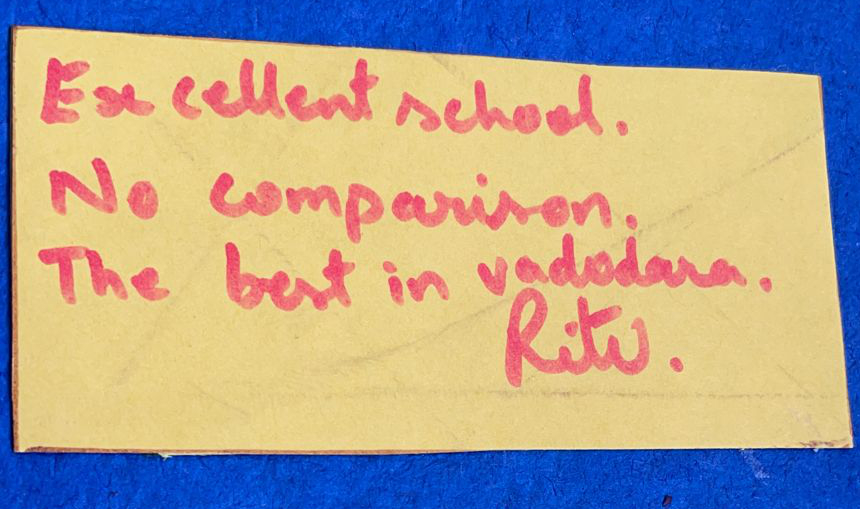 Excellent school.
No comparison.
The best in vadodara.
Ritu.